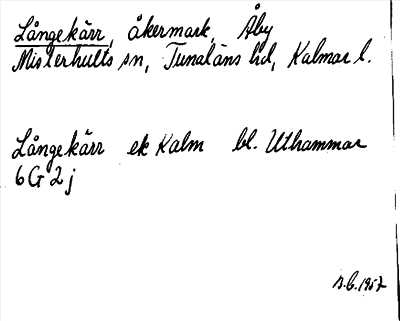 Långekärr, åkermark, Åby
Misterhults sn, Tunaläns hd, Kalmar l.
Långekärr ek Kalm bl. Uthammar
6 G 2 j
B.C. 1957